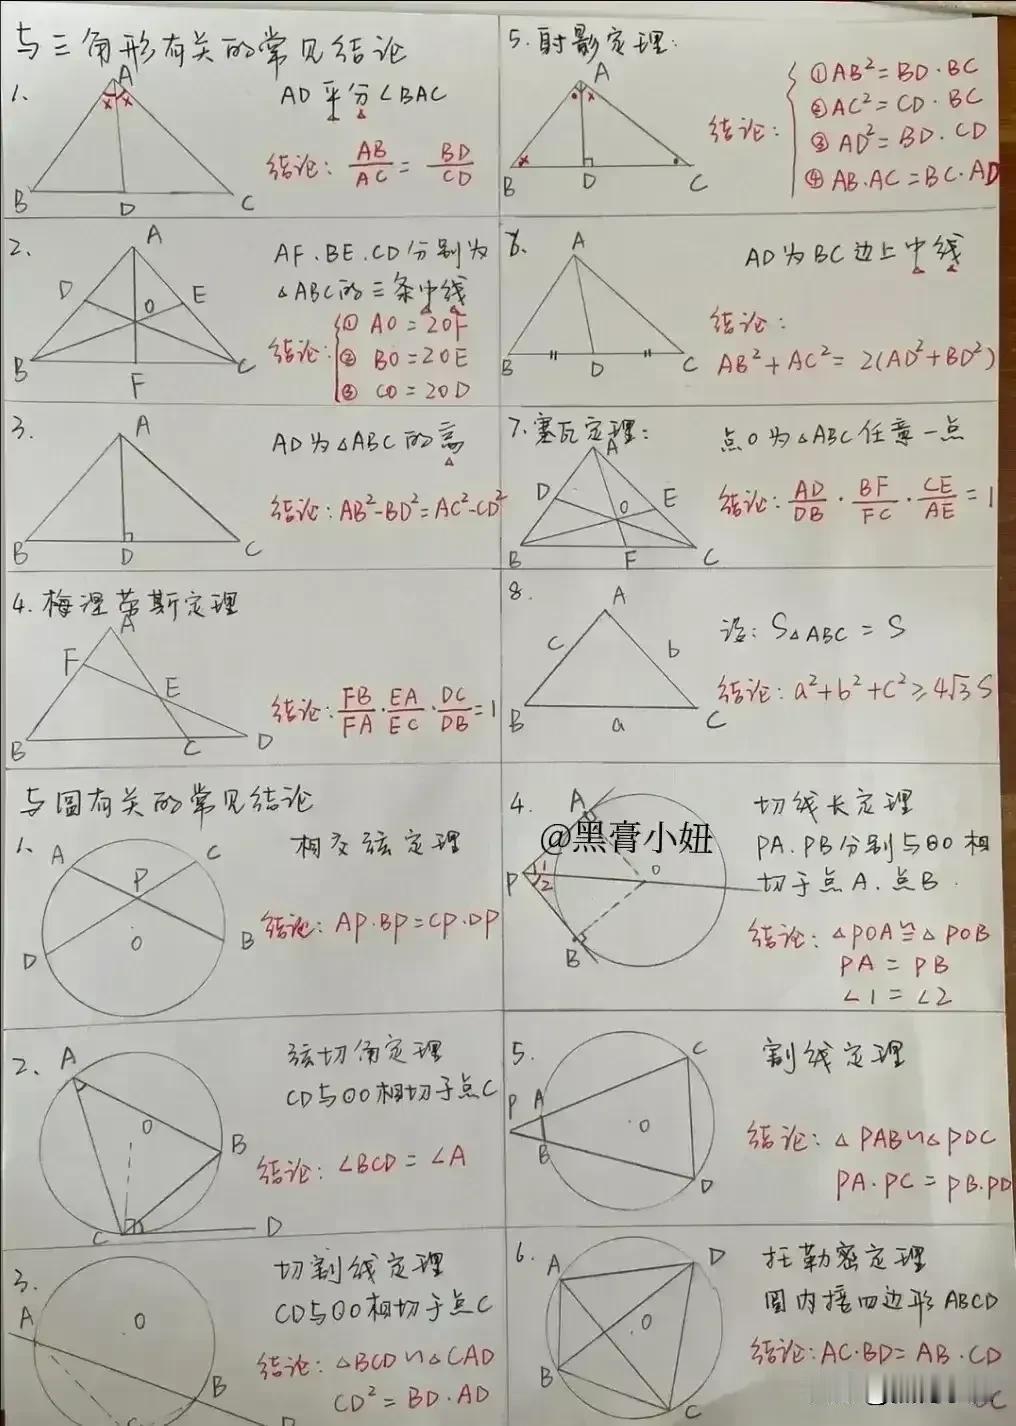 与三角形有关的常见结论
1.
A
x x
B
D
C
AD平分∠BAC
结论: AB/AC = BD/CD
2.
A
D
E
O
B
F
C
AF.BE.CD分别为
△ABC的三条中线
结论: ① AO=2OF
② BO=2OE
③ CO=2OD
3.
A
B
D
C
AD为△ABC的高
结论: AB²-BD²=AC²-CD²
4. 梅涅劳斯定理
A
F
E
B
C
D
结论: FB/FA · EA/EC · DC/DB = 1
5. 射影定理:
A
x
x
B
D
C
结论: ①AB²=BD·BC
②AC²=CD·BC
③AD²=BD·CD
④AB·AC=BC·AD
6.
A
B
D
C
AD为BC边上中线
结论:
AB²+AC²=2(AD²+BD²)
7. 塞瓦定理:
A
D
E
O
B
F
C
点O为△ABC任意一点
结论: AD/DB · BF/FC · CE/AE = 1
8.
A
c
b
B
a
C
设: S△ABC = S
结论: a²+b²+c²≥4√3 S
与圆有关的常见结论
1.
A
C
P
O
D
B
相交弦定理
结论: AP·BP=CP·DP
2.
A
O
B
C
D
弦切角定理
CD与⊙O相切于点C
结论: ∠BCD = ∠A
3.
A
O
B
切割线定理
CD与⊙O相切于点C
结论: △BCD∽△CAD
CD²=BD·AD
4.
A
P
1
2
O
B
切线长定理
PA.PB分别与⊙O相
切于点A.点B.
结论: △POA≌△POB
PA = PB
∠1 = ∠2
@黑膏小妞
5.
C
P
A
O
B
D
割线定理
结论: △PAB∽△PDC
PA·PC=PB·PD
6.
A
D
O
B
C
托勒密定理
圆内接四边形ABCD
结论: AC·BD=AB·CD